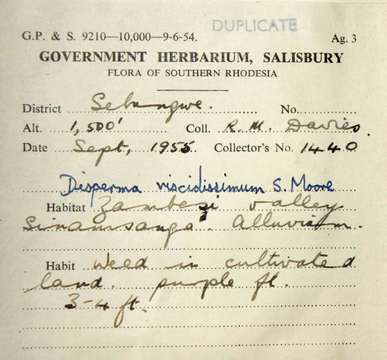 G.P. & S. 9210—10,000—9-6-54.
DUPLICATE
Ag. 3
GOVERNMENT HERBARIUM, SALISBURY
FLORA OF SOUTHERN RHODESIA
District Sebungwe. No.
Alt. 1,500' Coll. R. M. Davies.
Date Sept, 1955 Collector's No. 1440
Disperma viscidissimum S. Moore
Habitat Zambezi valley
Sinamsanga Alluvium.
Habit Weed in cultivated
land. purple fl.
3-4 ft.